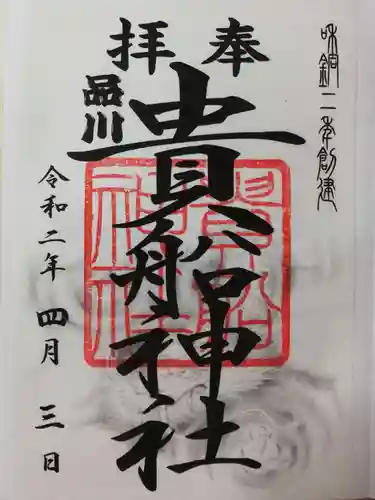 和銅二年創建
奉拝
品川
貴船神社
令和二年 四月 三日